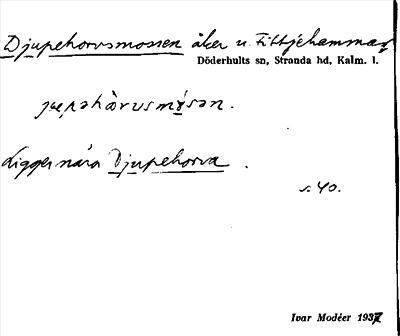 Djupehorvsmossen åker u. Fittjehammar
Döderhults sn, Stranda hd, Kalm. l.
Ligger nära Djupehorva .
s. 40.
Ivar Modéer 1937